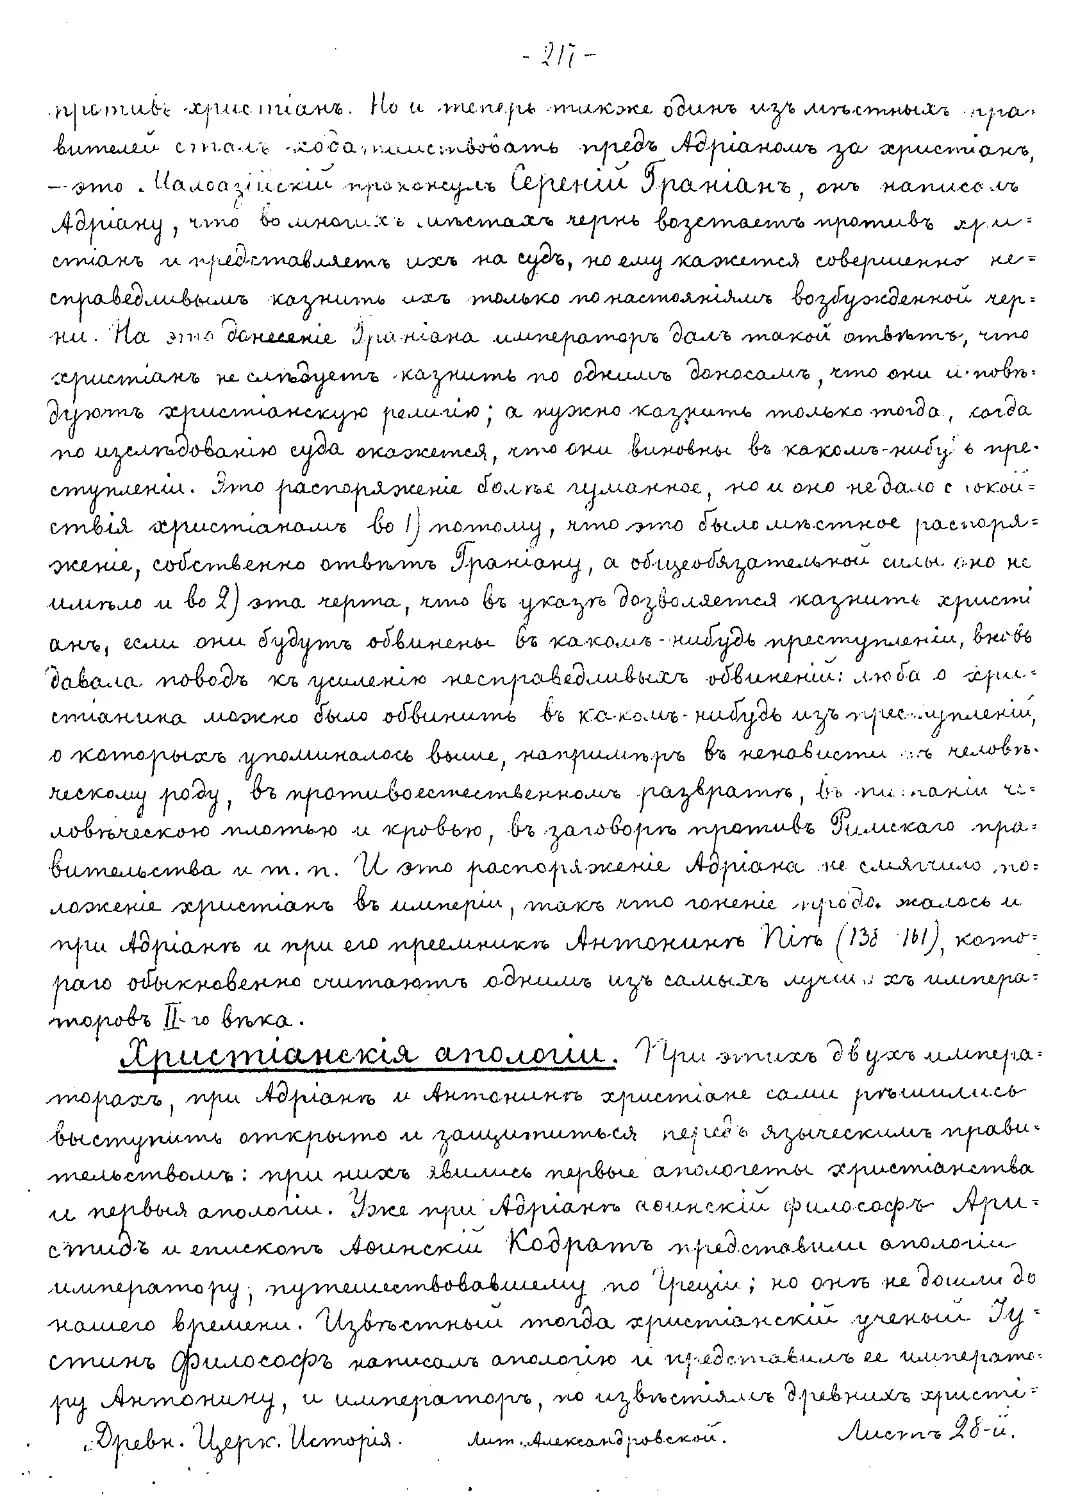 - 217 -
противъ христіанъ. Но и теперь также одинъ изъ мѣстныхъ пра-
вителей сталъ ходатайствовать предъ Адріаномъ за христіанъ,
— это Малоазійскій проконсулъ Сереній Граніанъ, онъ написалъ
Адріану, что во многихъ мѣстахъ чернь возстаетъ противъ хри=
стіанъ и представляетъ ихъ на судъ, но ему кажется совершенно не=
справедливымъ казнить ихъ только по настояніямъ возбужденной чер=
ни. На это донесеніе Граніана императоръ далъ такой отвѣтъ, что
христіанъ не слѣдуетъ казнить по однимъ доносамъ, что они исповѣ-
дуютъ христіанскую религію; а нужно казнить только тогда, когда
по изслѣдованію суда окажется, что они виновны въ какомъ-нибудь пре-
ступленіи. Это распоряженіе болѣе гуманное, но и оно не дало спокой=
ствія христіанамъ во 1) потому, что это было мѣстное распоря=
женіе, собственно отвѣтъ Граніану, а общеобязательной силы оно не
имѣло и во 2) эта черта, что въ указѣ дозволяется казнить христі
анъ, если они будутъ обвинены въ какомъ-нибудь преступленіи, вновь
давала поводъ къ усиленію несправедливыхъ обвиненій: любаго хри=
стіанина можно было обвинить въ какомъ-нибудь изъ преступленій,
о которыхъ упоминалось выше, напримѣръ въ ненависти къ человѣ-
ческому роду, въ противоестественномъ развратѣ, въ питаніи че=
ловѣческою плотью и кровью, въ заговорѣ противъ Римскаго пра=
вительства и т. п. И это распоряженіе Адріана не смягчило по=
ложеніе христіанъ въ имперіи, такъ что гоненіе продолжалось и
при Адріанѣ и при его преемникѣ Антонинѣ Піѣ (138 161), кото=
раго обыкновенно считаютъ однимъ изъ самыхъ лучшихъ импера=
торовъ II-го вѣка.
Христіанскія апологіи. При этихъ двухъ импера=
торахъ, при Адріанѣ и Антонинѣ христіане сами рѣшились
выступить открыто и защититься передъ языческимъ прави-
тельствомъ: при нихъ явились первые апологеты христіанства
и первыя апологіи. Уже при Адріанѣ аѳинскій философъ Ари=
стидъ и епископъ Аѳинскій Кодратъ представили апологіи
императору, путешествовавшему по Греціи; но онѣ не дошли до
нашего времени. Извѣстный тогда христіанскій ученый Іу=
стинъ Философъ написалъ апологію и представилъ ее императо-
ру Антонину, и императоръ, по извѣстіямъ древнихъ христі=
Древн. Церк. Исторія. Лит. Александровской. Листъ 28-й.